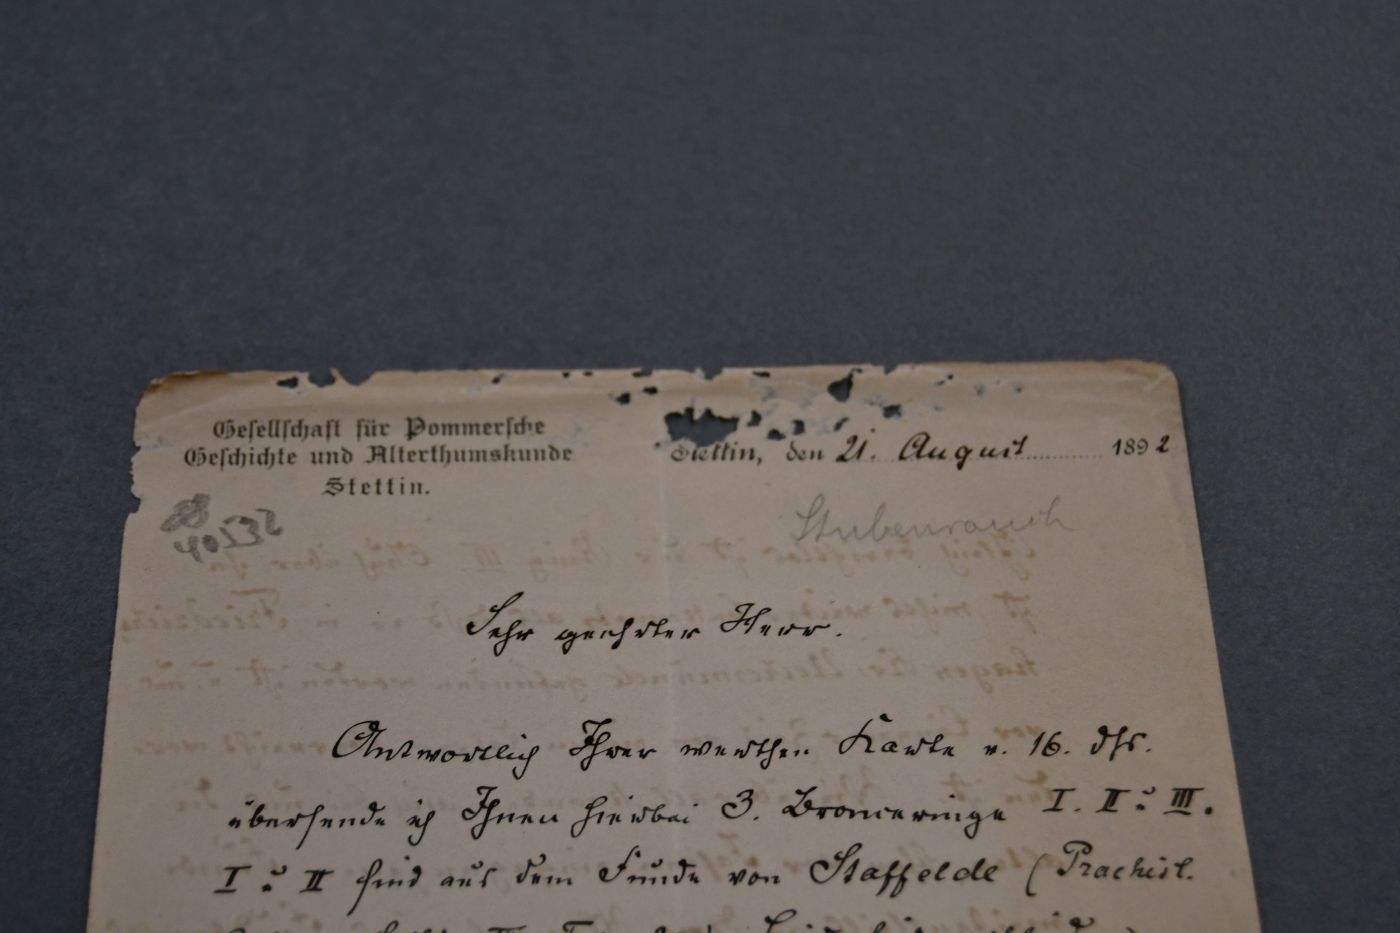 Gesellschaft für Pommersche
Geschichte und Alterthumskunde
Stettin.
Stettin, den 21. August 1892
Stubenrauch
Sehr geehrter Herr.
Antwortlich Ihrer werthen Karte v. 16. dss.
übersende ich Ihnen hierbei 3. Bronceringe I. II u III.
I u II sind aus dem Funde von Staffelde (Praehist.